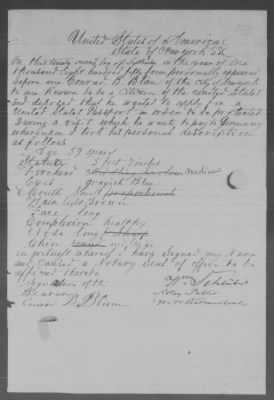 United States of America
State of New york SS
On this twenty day of in the year of one
thousand eight hundred fifty four personally appeared
before me Conrad B. Blum of the City of Newyork
to me known to be a Citizen of the United States
and deposed that he wants to apply for a
United States Passport, in order to be protected
During a visit which he wants to pay to Germany
whereupon I took his personal description
as follows
Age 39 years
Stature 5 foot 7 inches
Forehead medium
Eyes grayish Blue
Mouth Small
Hair light Brown
Face long
Complexion healthy
Nose long
Chin
in witness whereof I have Signed my Name
and Caused a Notary Seal of office to be
affixed thereto
Signature of the
Bearer
Conrad B. Blum
Notary Public